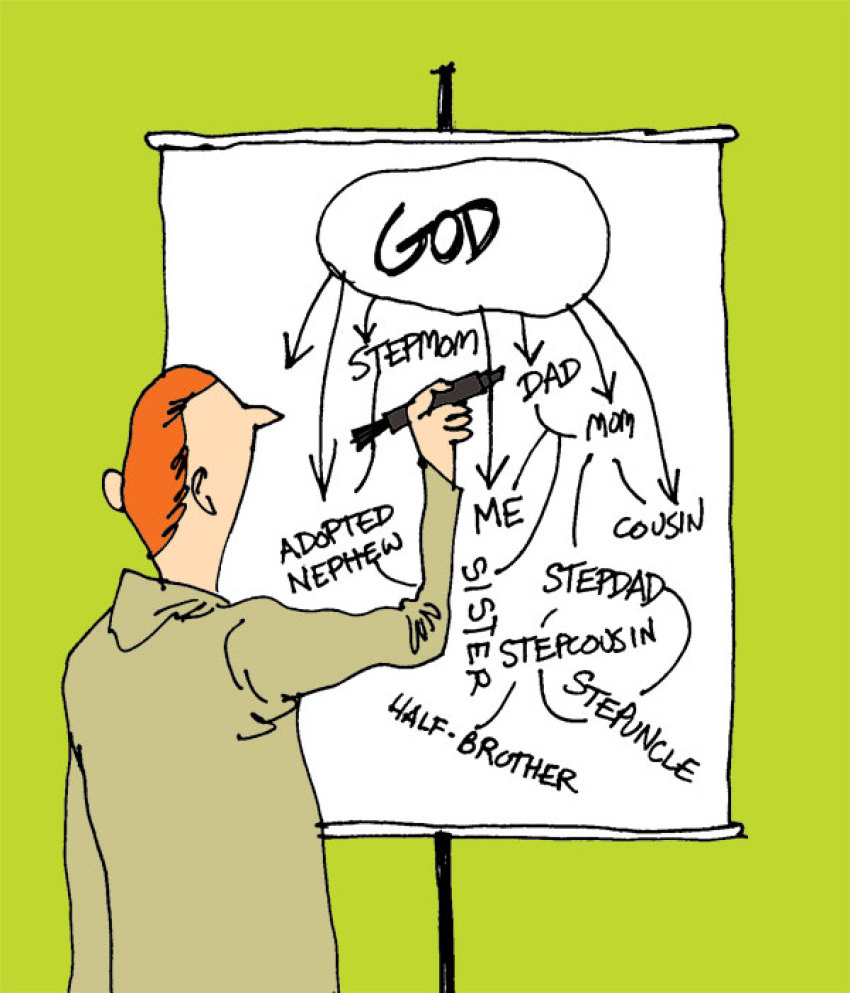 GOD
STEPMOM
DAD
MOM
ADOPTED
NEPHEW
ME
COUSIN
SISTER
STEPDAD
STEPCOUSIN
STEPUNCLE
HALF-BROTHER